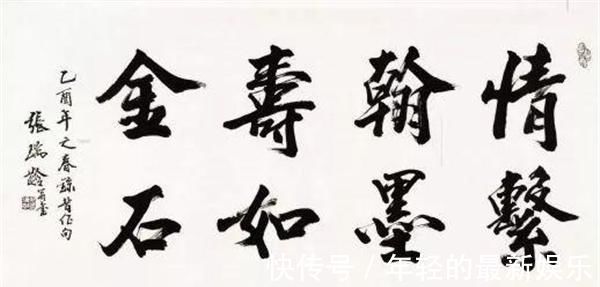 情繫
翰墨
壽如
金石
乙酉年之春錄昔作句
張瑞齡
快传号 / 年轻的最新娱乐